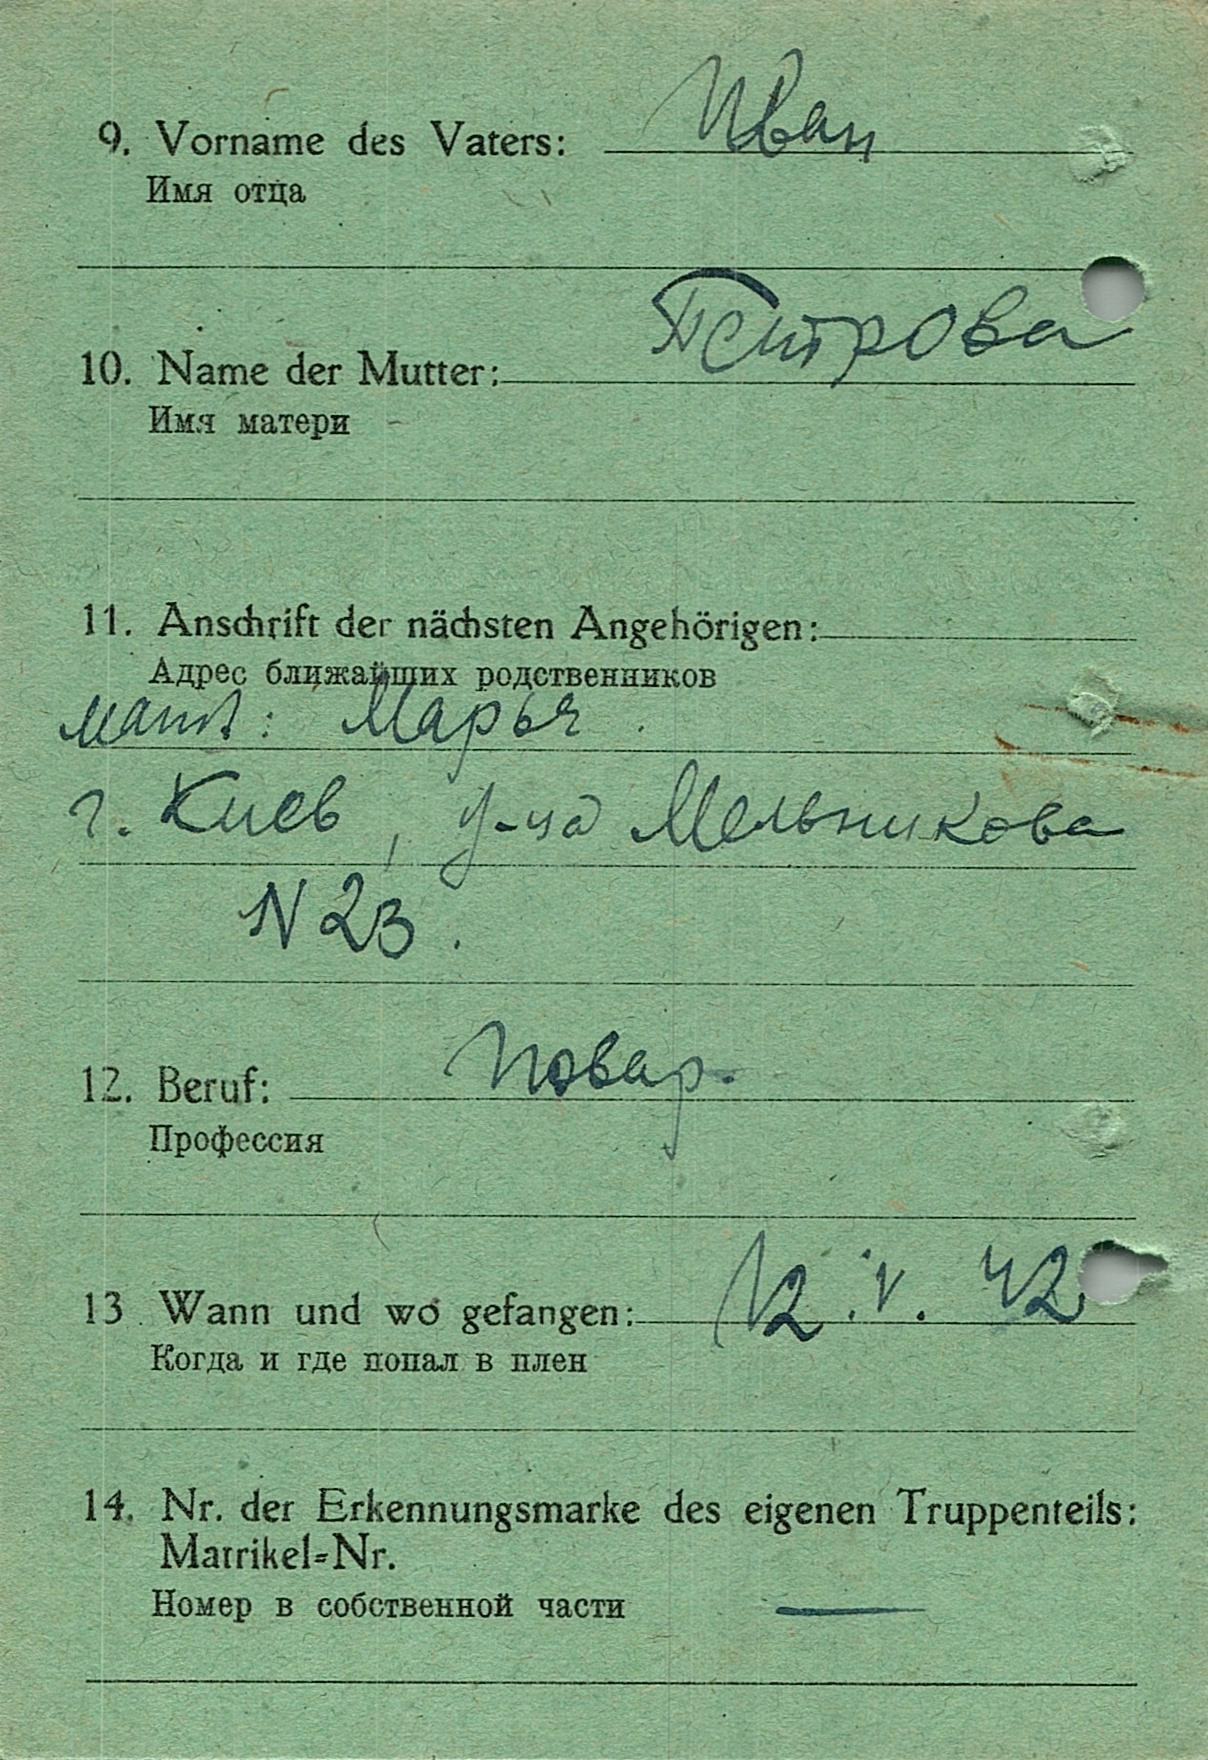 9. Vorname des Vaters: Иван
Имя отца
Петрова
10. Name der Mutter:
Имя матери
11. Anschrift der nächsten Angehörigen:
Адрес ближайших родственников
мать: Марья.
г. Киев, у-ца Мельникова
N 23.
12. Beruf: Повар.
Профессия
13. Wann und wo gefangen: 12.V.42
Когда и где попал в плен
14. Nr. der Erkennungsmarke des eigenen Truppenteils:
Matrikel=Nr.
Номер в собственной части —